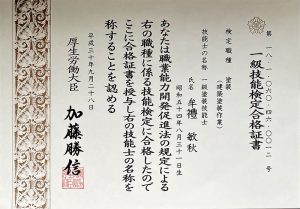 第一八-一-〇六〇-四六-〇〇一二号
一級技能検定合格証書
検定職種 塗装
(建築塗装作業)
技能士の名称 一級塗装技能士
氏名 牟禮 敏秋
昭和五十四年八月三十一日生
あなたは職業能力開発促進法の規定による
右の職種に係る技能検定に合格したので
ここに合格証書を授与し右の技能士の名称を
称することを認める
平成三十年九月二十八日
厚生労働大臣
加藤勝信